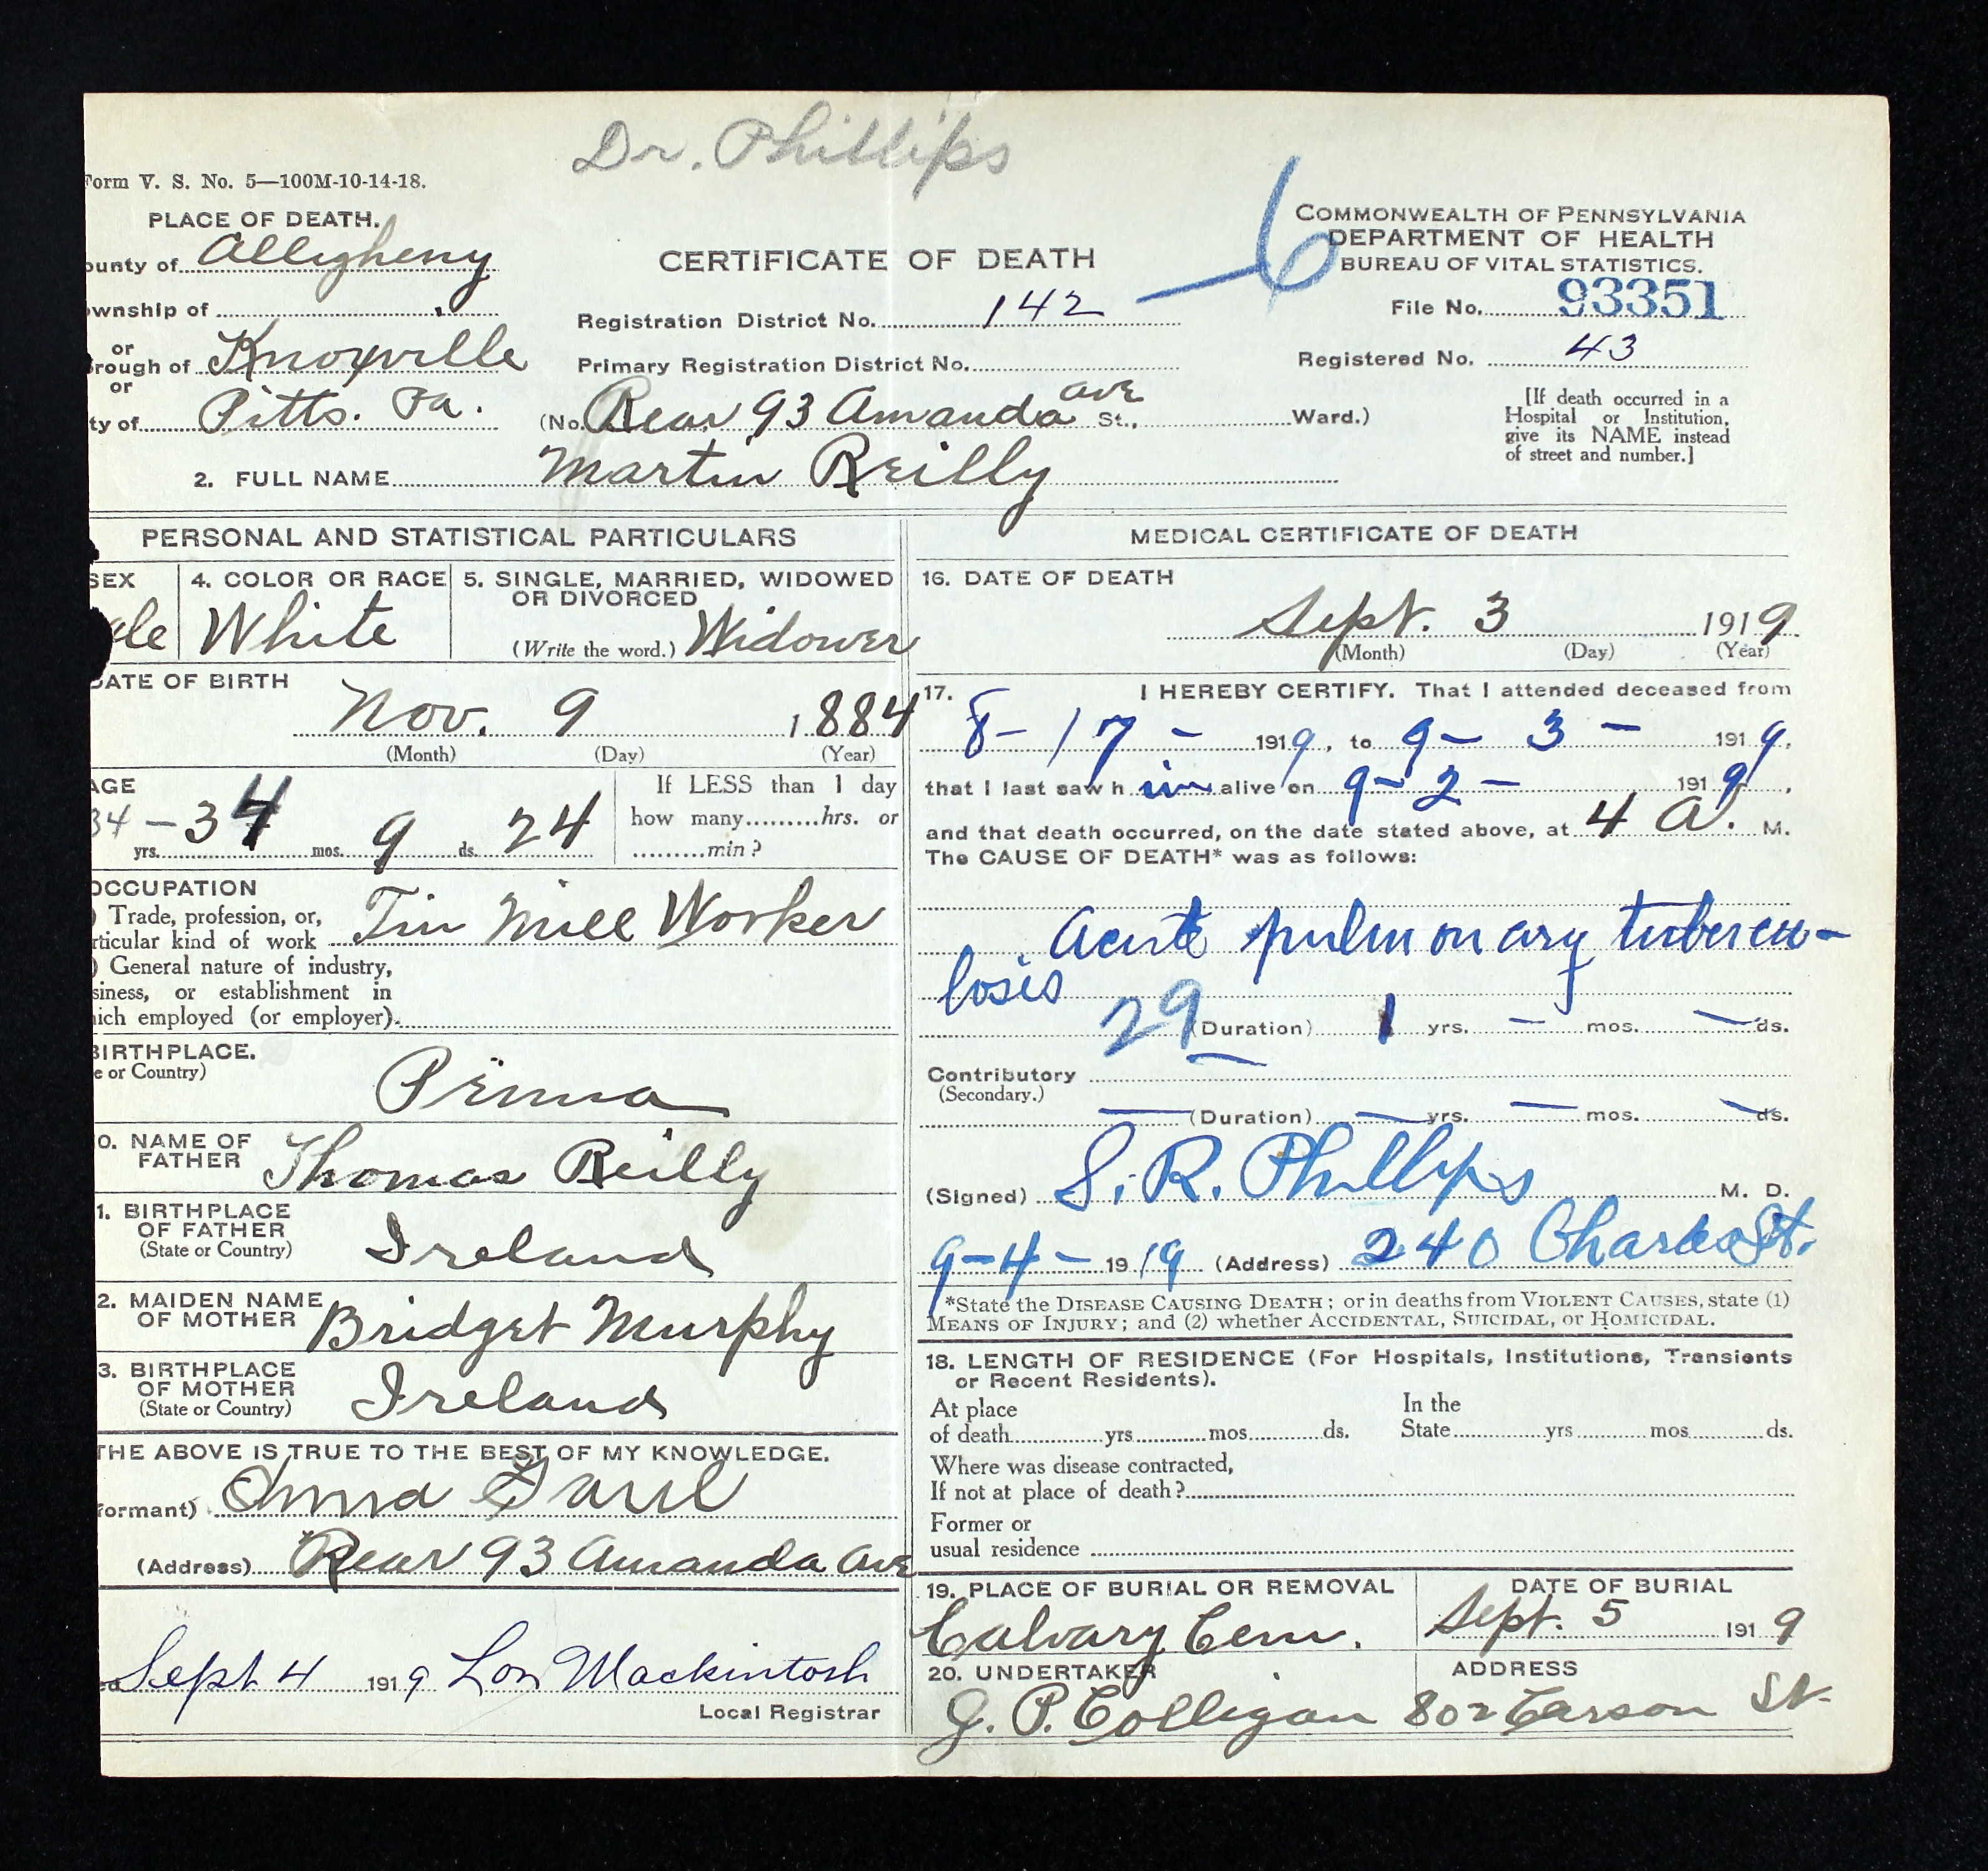 Dr. Phillips
Form V. S. No. 5—100M-10-14-18.
PLACE OF DEATH.
ounty of Allegheny
ownship of
or
rough of Knoxville
or
ty of Pitts. Pa.
CERTIFICATE OF DEATH
Registration District No. 142 — 6
Primary Registration District No.
(No. Rear 93 Amanda Ave St., Ward.)
COMMONWEALTH OF PENNSYLVANIA
DEPARTMENT OF HEALTH
BUREAU OF VITAL STATISTICS.
File No. 93351
Registered No. 43
[If death occurred in a
Hospital or Institution,
give its NAME instead
of street and number.]
2. FULL NAME Martin Reilly
PERSONAL AND STATISTICAL PARTICULARS
SEX
ale
4. COLOR OR RACE
White
5. SINGLE, MARRIED, WIDOWED
OR DIVORCED
(Write the word.) Widower
DATE OF BIRTH
Nov. 9 1884
(Month) (Day) (Year)
AGE
34 — 34 yrs. 9 mos. 24 ds.
If LESS than 1 day
how many.........hrs. or
.........min?
OCCUPATION
) Trade, profession, or,
rticular kind of work Tin Mill Worker
) General nature of industry,
siness, or establishment in
hich employed (or employer).
BIRTHPLACE.
e or Country)
Penna
0. NAME OF
FATHER Thomas Reilly
1. BIRTHPLACE
OF FATHER
(State or Country) Ireland
2. MAIDEN NAME
OF MOTHER Bridget Murphy
3. BIRTHPLACE
OF MOTHER
(State or Country) Ireland
THE ABOVE IS TRUE TO THE BEST OF MY KNOWLEDGE.
formant) Anna
(Address) Rear 93 Amanda Ave
Sept 4 1919 Mackintosh
Local Registrar
MEDICAL CERTIFICATE OF DEATH
16. DATE OF DEATH
Sept. 3 1919
(Month) (Day) (Year)
17. I HEREBY CERTIFY. That I attended deceased from
8-17- 1919, to 9-3- 1919,
that I last saw h im alive on 9-2- 1919,
and that death occurred, on the date stated above, at 4 A. M.
The CAUSE OF DEATH* was as follows:
Acute pulmonary tubercu-
losis
29 (Duration) 1 yrs. — mos. — ds.
Contributory
(Secondary.)
— (Duration) — yrs. — mos. — ds.
(Signed) S. R. Phillips M. D.
9-4- 1919 (Address) 240 Charles St.
*State the DISEASE CAUSING DEATH; or in deaths from VIOLENT CAUSES, state (1)
MEANS OF INJURY; and (2) whether ACCIDENTAL, SUICIDAL, or HOMICIDAL.
18. LENGTH OF RESIDENCE (For Hospitals, Institutions, Transients
or Recent Residents).
At place
of death yrs mos ds.
In the
State yrs mos ds.
Where was disease contracted,
If not at place of death?
Former or
usual residence
19. PLACE OF BURIAL OR REMOVAL
Calvary Cem.
DATE OF BURIAL
Sept. 5 1919
20. UNDERTAKER
J. P. Colligan
ADDRESS
802 Carson St.